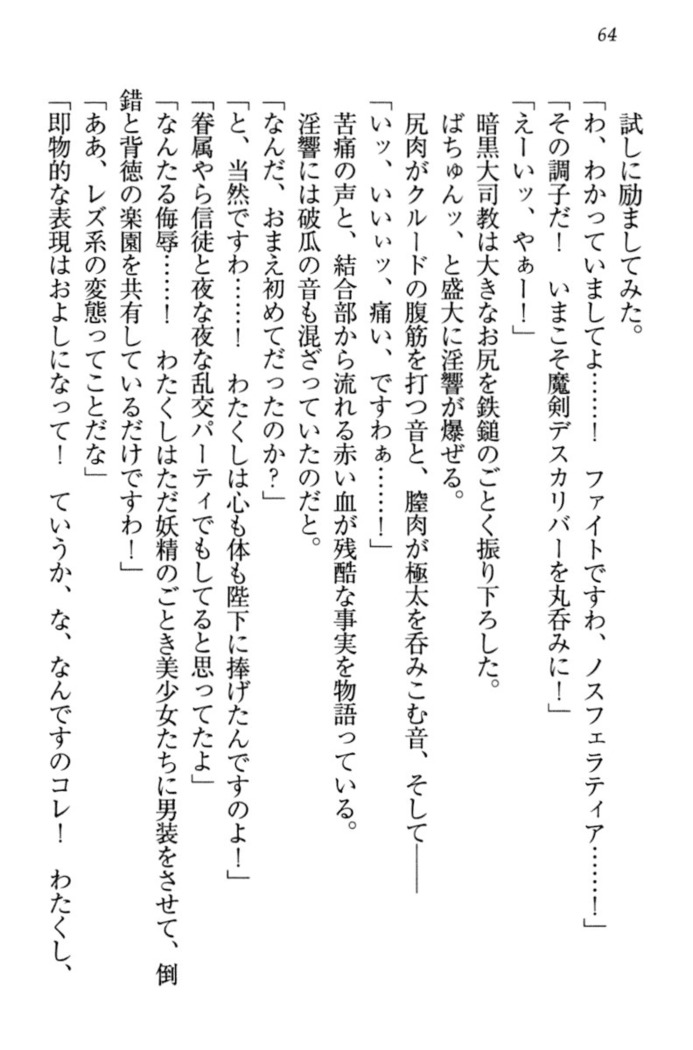 64
試しに励ましてみた。
「わ、わかっていましてよ……！　ファイトですわ、ノスフェラティア……！」
「その調子だ！　いまこそ魔剣デスカリバーを丸呑みに！」
「えーいッ、やぁー！」
暗黒大司教は大きなお尻を鉄鎚のごとく振り下ろした。
ばちゅんッ、と盛大に淫響が爆ぜる。
尻肉がクルードの腹筋を打つ音と、膣肉が極太を呑みこむ音、そして――
「いッ、いいぃッ、痛い、ですわぁ……！」
苦痛の声と、結合部から流れる赤い血が残酷な事実を物語っている。
淫響には破瓜の音も混ざっていたのだと。
「なんだ、おまえ初めてだったのか？」
「と、当然ですわ……！　わたくしは心も体も陛下に捧げたんですのよ！」
「眷属やら信徒と夜な夜な乱交パーティでもしてると思ってたよ」
「なんたる侮辱……！　わたくしはただ妖精のごとき美少女たちに男装をさせて、倒
錯と背徳の楽園を共有しているだけですわ！」
「ああ、レズ系の変態ってことだな」
「即物的な表現はおよしになって！　ていうか、な、なんですのコレ！　わたくし、